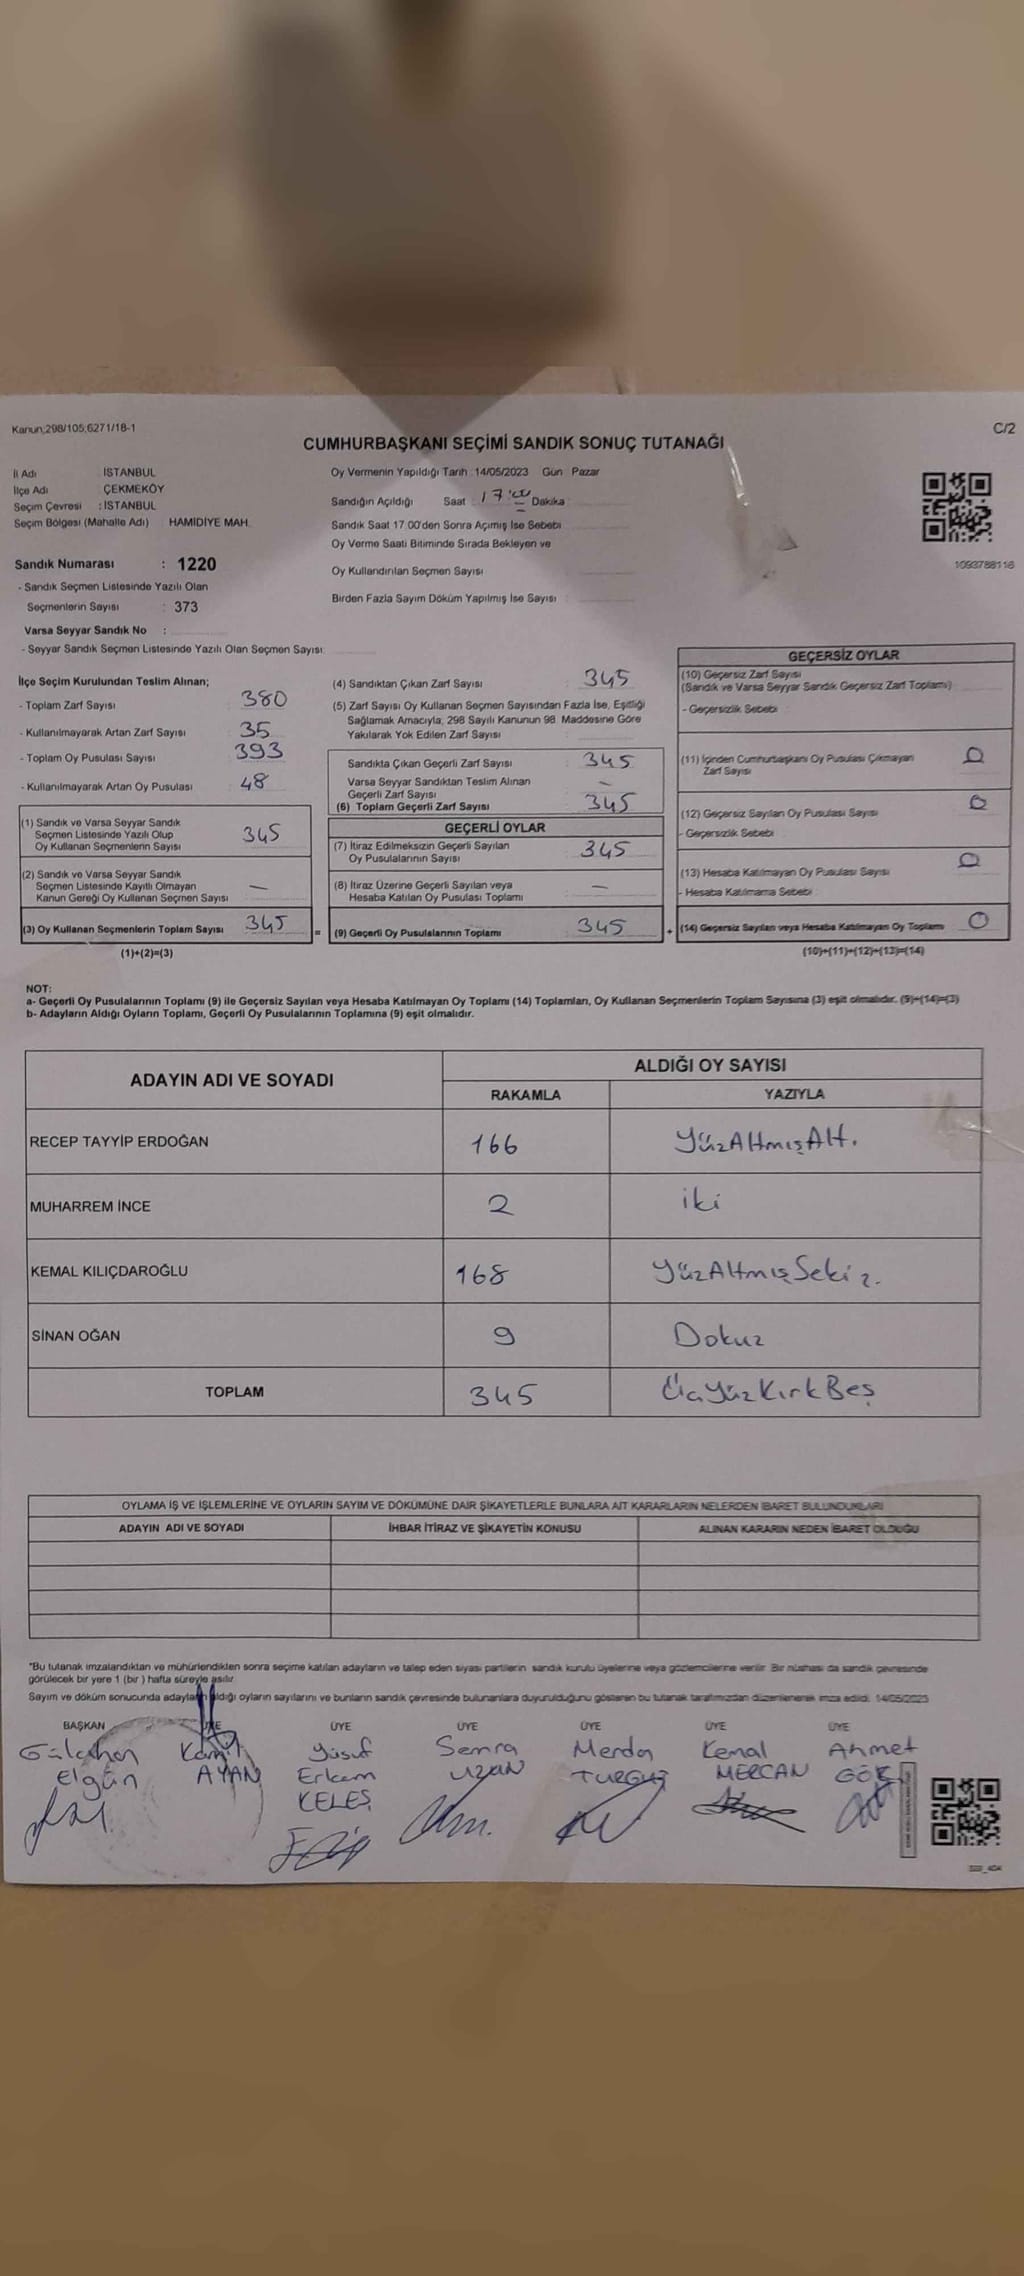 Kanun;298/105;6271/18-1
C/2
CUMHURBAŞKANI SEÇİMİ SANDIK SONUÇ TUTANAĞI
İl Adı : İSTANBUL
İlçe Adı : ÇEKMEKÖY
Seçim Çevresi : İSTANBUL
Seçim Bölgesi (Mahalle Adı) : HAMİDİYE MAH.
Oy Vermenin Yapıldığı Tarih : 14/05/2023 Gün : Pazar
Sandığın Açıldığı Saat : 17:00 Dakika :
Sandık Saat 17.00'den Sonra Açımış İse Sebebi
Oy Verme Saati Bitiminde Sırada Bekleyen ve
Oy Kullandırılan Seçmen Sayısı
Birden Fazla Sayım Döküm Yapılmış İse Sayısı :
1093788116
Sandık Numarası : 1220
- Sandık Seçmen Listesinde Yazılı Olan
Seçmenlerin Sayısı : 373
Varsa Seyyar Sandık No :
- Seyyar Sandık Seçmen Listesinde Yazılı Olan Seçmen Sayısı:
İlçe Seçim Kurulundan Teslim Alınan;
- Toplam Zarf Sayısı : 380
- Kullanılmayarak Artan Zarf Sayısı : 35
- Toplam Oy Pusulası Sayısı : 393
- Kullanılmayarak Artan Oy Pusulası : 48
(1) Sandık ve Varsa Seyyar Sandık
Seçmen Listesinde Yazılı Olup
Oy Kullanan Seçmenlerin Sayısı : 345
(2) Sandık ve Varsa Seyyar Sandık
Seçmen Listesinde Kayıtlı Olmayan
Kanun Gereği Oy Kullanan Seçmen Sayısı : —
(3) Oy Kullanan Seçmenlerin Toplam Sayısı : 345
(1)+(2)=(3)
(4) Sandıktan Çıkan Zarf Sayısı : 345
(5) Zarf Sayısı Oy Kullanan Seçmen Sayısından Fazla İse, Eşitliği
Sağlamak Amacıyla; 298 Sayılı Kanunun 98. Maddesine Göre
Yakılarak Yok Edilen Zarf Sayısı :
Sandıkta Çıkan Geçerli Zarf Sayısı : 345
Varsa Seyyar Sandıktan Teslim Alınan
Geçerli Zarf Sayısı : —
(6) Toplam Geçerli Zarf Sayısı : 345
GEÇERLİ OYLAR
(7) İtiraz Edilmeksizin Geçerli Sayılan
Oy Pusulalarının Sayısı : 345
(8) İtiraz Üzerine Geçerli Sayılan veya
Hesaba Katılan Oy Pusulası Toplamı : —
= (9) Geçerli Oy Pusulalarının Toplamı : 345
GEÇERSİZ OYLAR
(10) Geçersiz Zarf Sayısı
(Sandık ve Varsa Seyyar Sandık Geçersiz Zarf Toplamı)
- Geçersizlik Sebebi :
(11) İçinden Cumhurbaşkanı Oy Pusulası Çıkmayan
Zarf Sayısı : 0
(12) Geçersiz Sayılan Oy Pusulası Sayısı : 0
- Geçersizlik Sebebi :
(13) Hesaba Katılmayan Oy Pusulası Sayısı : 0
- Hesaba Katılmama Sebebi :
+ (14) Geçersiz Sayılan veya Hesaba Katılmayan Oy Toplamı : 0
(10)+(11)+(12)+(13)=(14)
NOT:
a- Geçerli Oy Pusulalarının Toplamı (9) ile Geçersiz Sayılan veya Hesaba Katılmayan Oy Toplamı (14) Toplamları, Oy Kullanan Seçmenlerin Toplam Sayısına (3) eşit olmalıdır. (9)+(14)=(3)
b- Adayların Aldığı Oyların Toplamı, Geçerli Oy Pusulalarının Toplamına (9) eşit olmalıdır.
ADAYIN ADI VE SOYADI
ALDIĞI OY SAYISI
RAKAMLA YAZIYLA
RECEP TAYYİP ERDOĞAN 166 YüzAltmışAltı
MUHARREM İNCE 2 iki
KEMAL KILIÇDAROĞLU 168 YüzAltmışSekiz.
SİNAN OĞAN 9 Dokuz
TOPLAM 345 ÜçYüzKırkBeş
OYLAMA İŞ VE İŞLEMLERİNE VE OYLARIN SAYIM VE DÖKÜMÜNE DAİR ŞİKAYETLERLE BUNLARA AİT KARARLARIN NELERDEN İBARET BULUNDUKLARI
ADAYIN ADI VE SOYADI İHBAR İTİRAZ VE ŞİKAYETİN KONUSU ALINAN KARARIN NEDEN İBARET OLDUĞU
*Bu tutanak imzalandıktan ve mühürlendikten sonra seçime katılan adayların ve talep eden siyasi partilerin sandık kurulu üyelerine veya gözlemcilerine verilir. Bir nüshası da sandık çevresinde
görülecek bir yere 1 (bir ) hafta süreyle asılır.
Sayım ve döküm sonucunda adayların aldığı oyların sayılarını ve bunların sandık çevresinde bulunanlara duyurulduğunu gösteren bu tutanak tarafımızdan düzenlenerek imza edildi. 14/05/2023
BAŞKAN ÜYE ÜYE ÜYE ÜYE ÜYE ÜYE
Gülcihan Kamil Yusuf Semra Merdan Kemal Ahmet
Elgün AYAN Erkam UZUN TURGUT MERCAN GÖK
KELEŞ